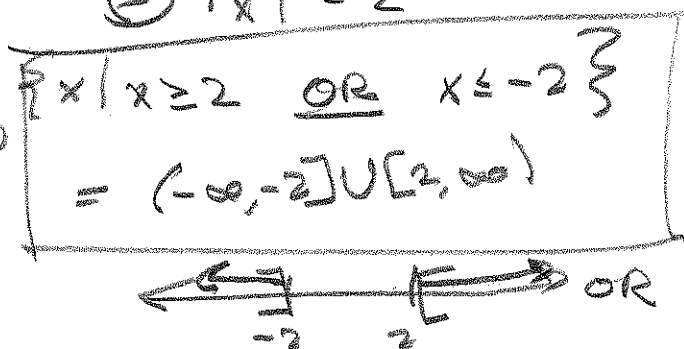 {x | x ≥ 2 OR x ≤ -2}
= (-∞, -2] ∪ [2, ∞)
OR
-2 2